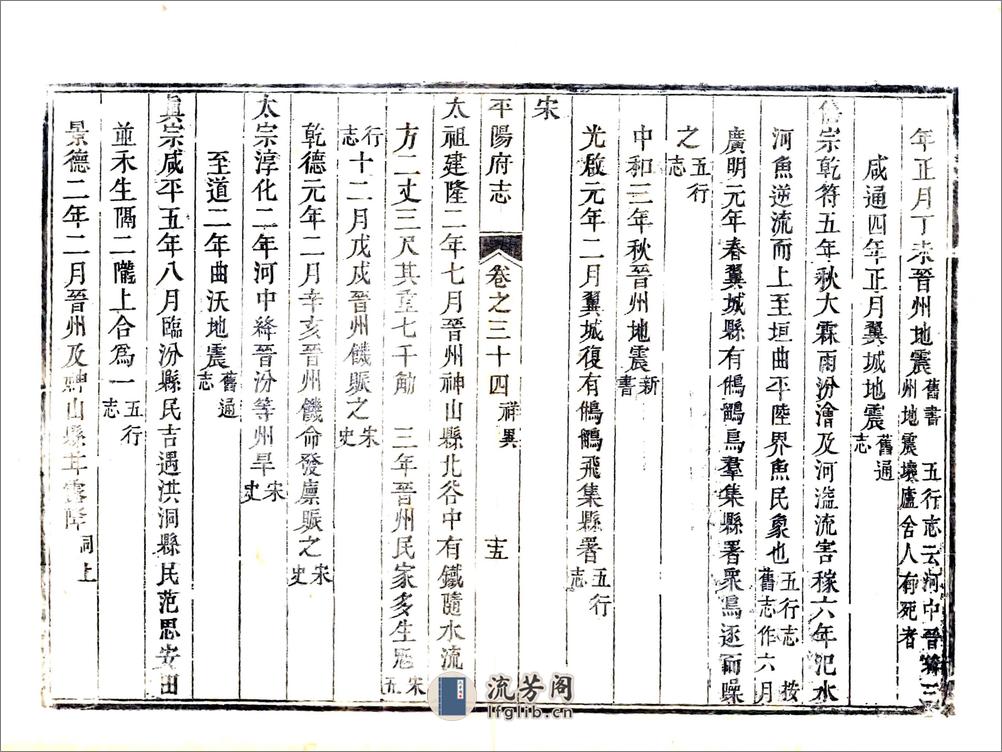 年正月丁未晉州地震舊書 五行志云河中晉絳三州地震壞廬舍人有死者
咸通四年正月翼城地震舊通志
僖宗乾符五年秋大霖雨汾澮及河溢流害稼六年汜水
河魚逆流而上至垣曲平陸界魚民象也五行志 按舊志作六月
廣明元年春翼城縣有鵂鶹鳥羣集縣署衆鳥逐而噪
之五行志
中和三年秋晉州地震新書
光啟元年二月翼城復有鵂鶹飛集縣署五行志
宋
平陽府志 卷之三十四 祥異 十五
太祖建隆二年七月晉州神山縣北谷中有鐵隨水流
方二丈三尺其重七千觔 三年晉州民家多生魃宋五
行志十二月戊戌晉州饑賑之宋史
乾德元年二月辛亥晉州饑命發廩賑之宋史
太宗淳化二年河中絳晉汾等州旱宋史
至道二年曲沃地震舊通志
真宗咸平五年八月臨汾縣民吉遇洪洞縣民范思安田
並禾生隔二隴上合為一五行志
景德二年二月晉州及神山縣甘露降同上
流芳阁
lfglib.cn